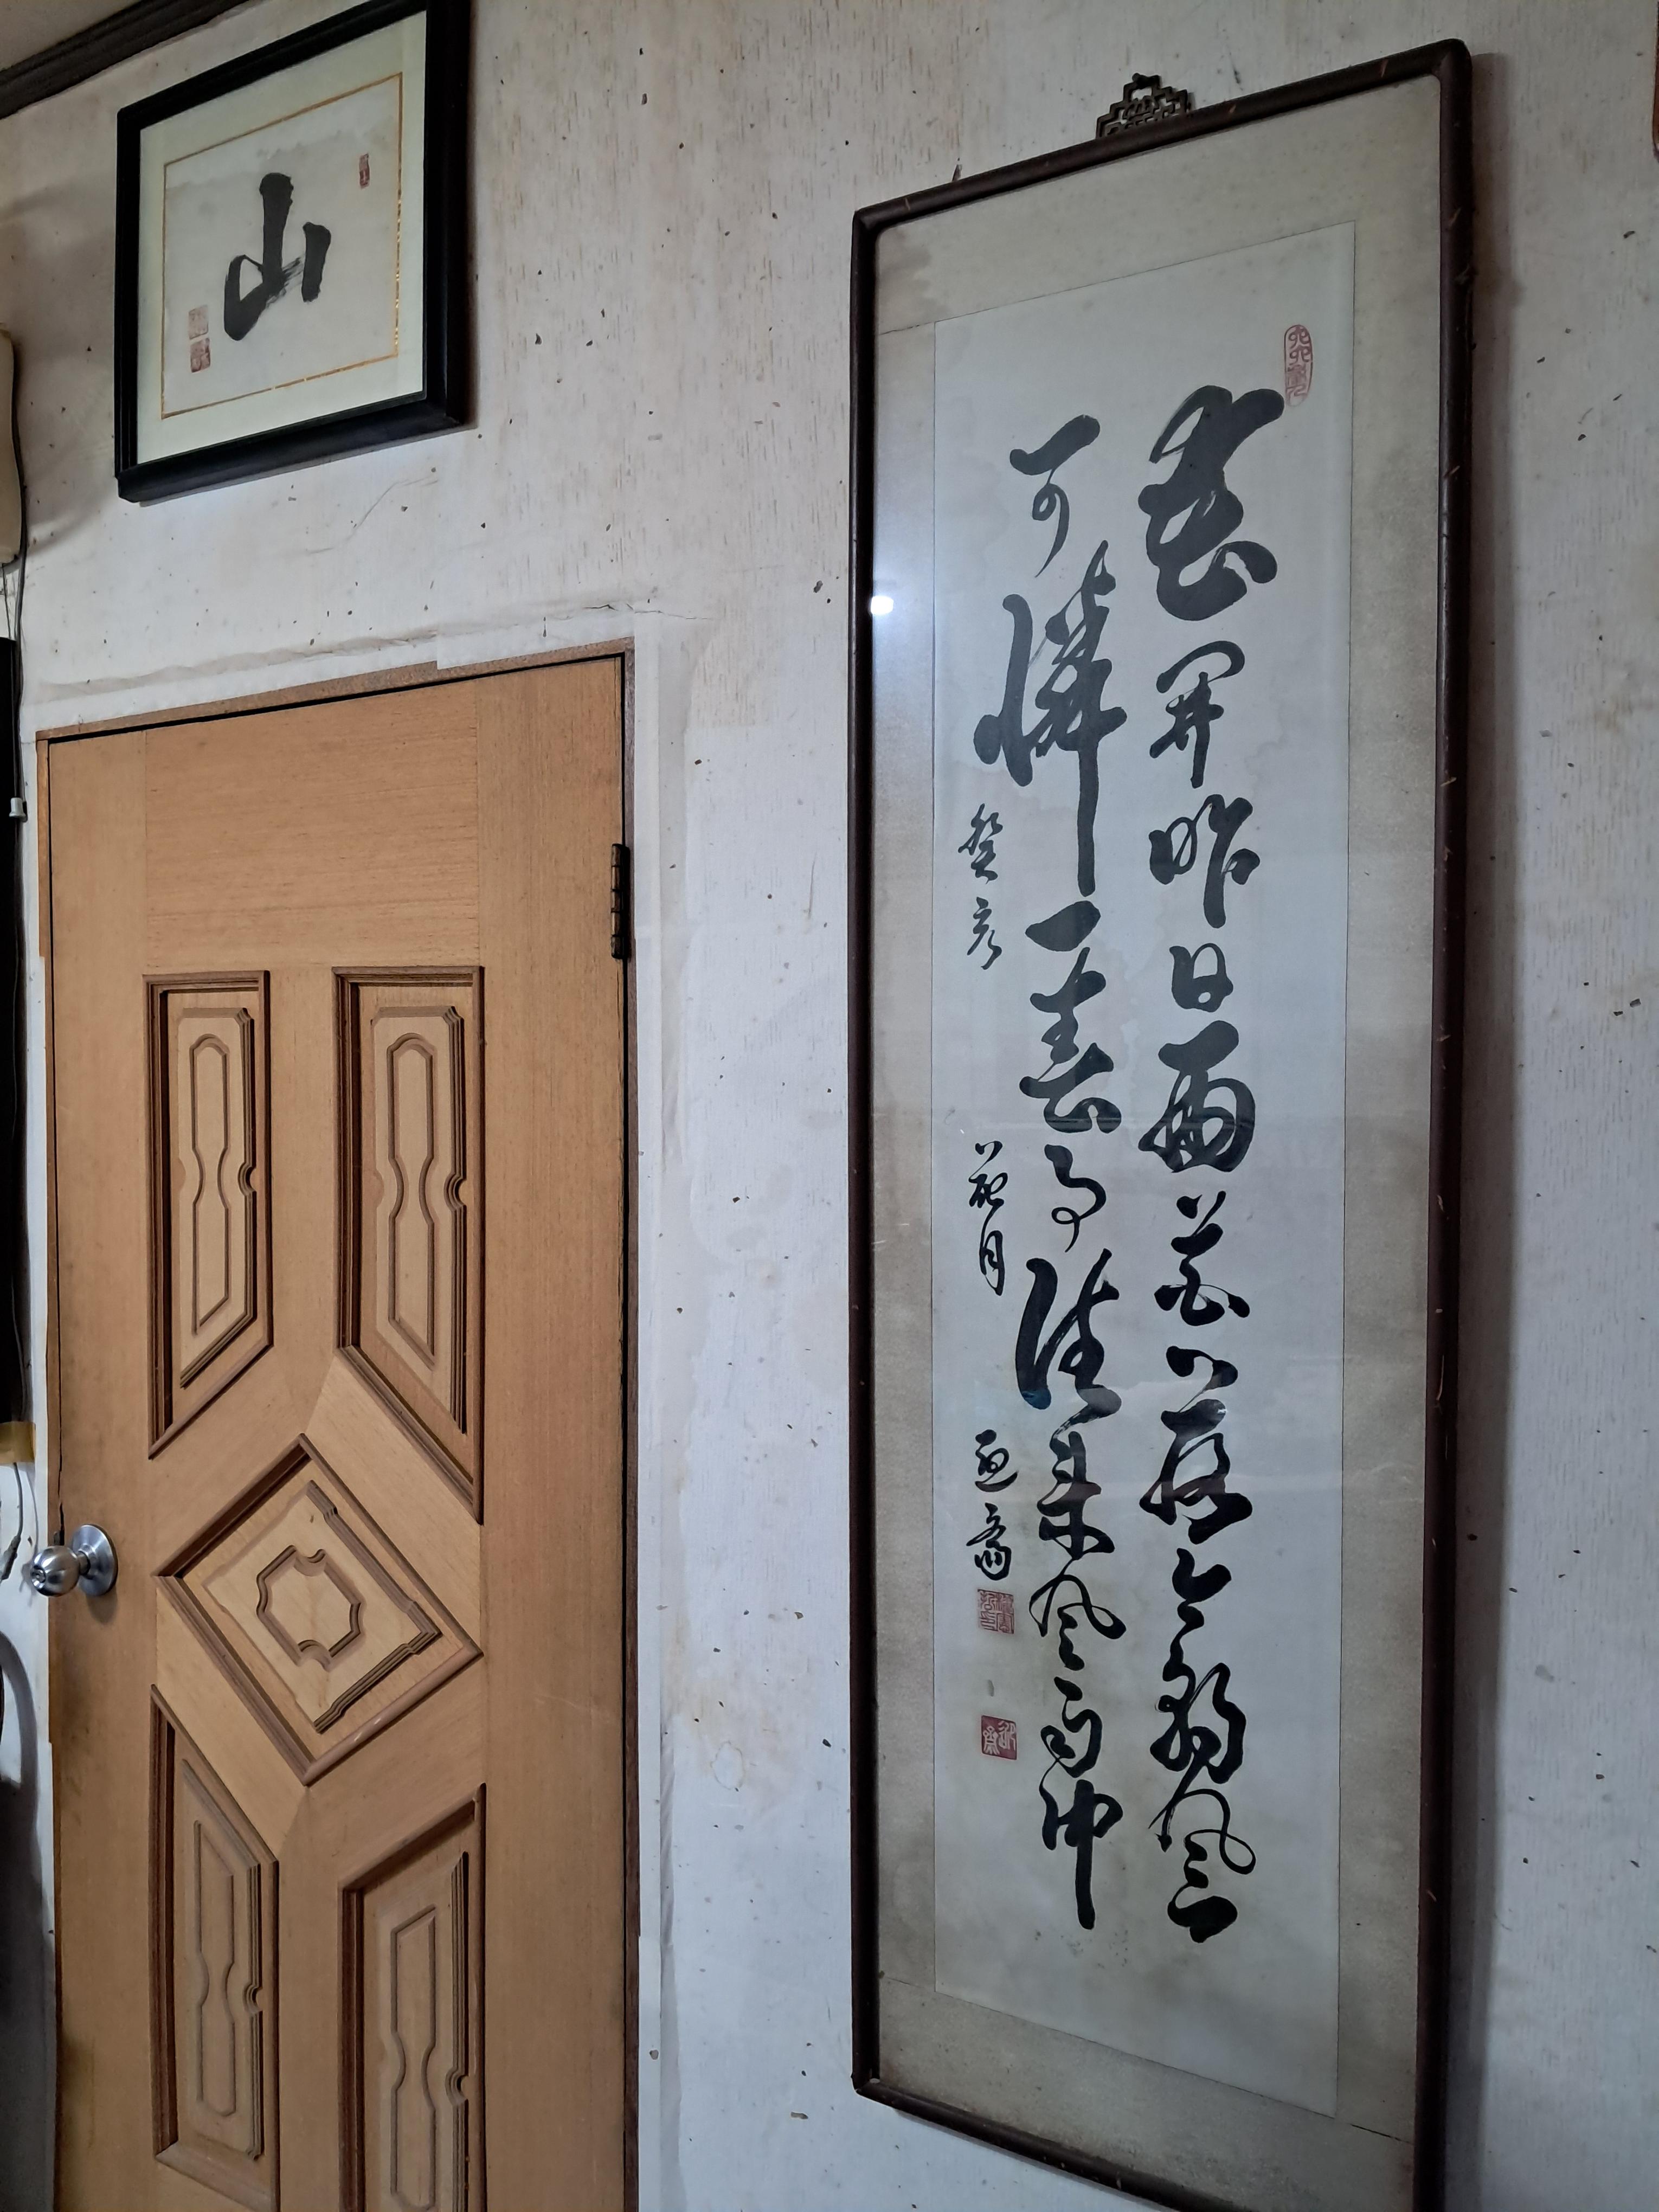 山
花開昨日雨花落今朝風
可憐一春事往来風雨中
癸亥 花月